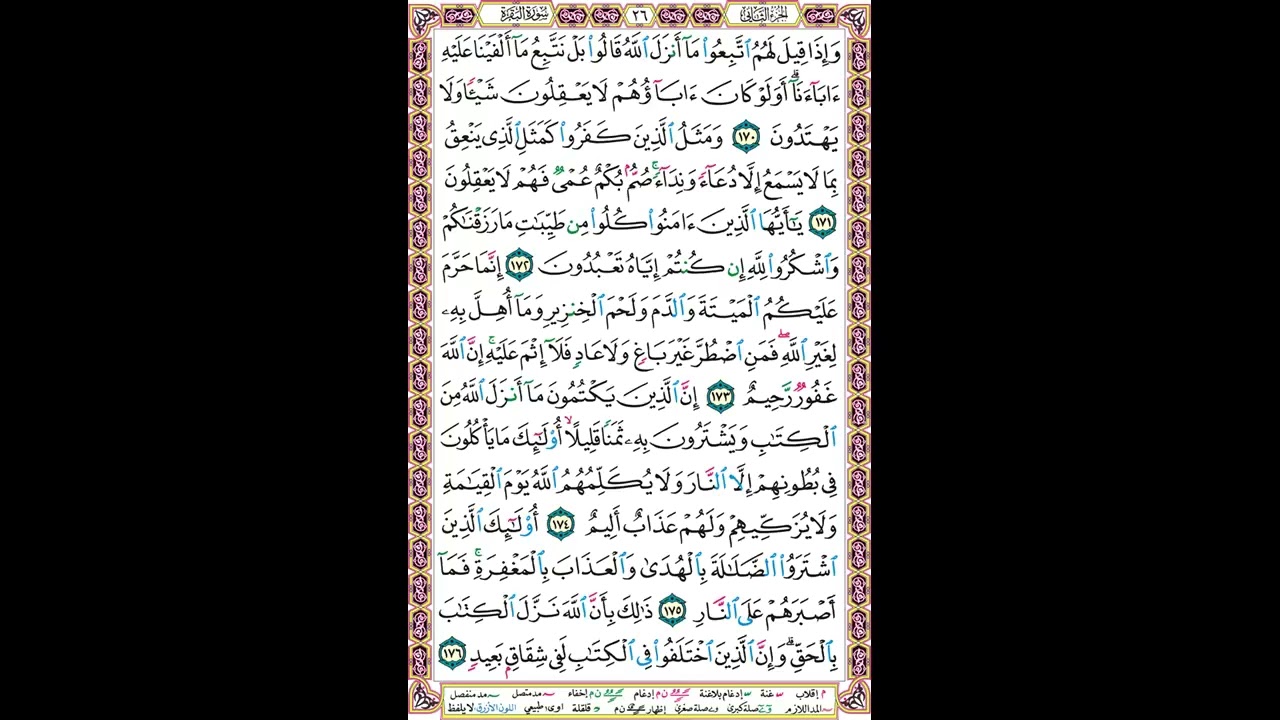 الجزء الثاني
٢٦
سورة البقرة
وَإِذَا قِيلَ لَهُمُ ٱتَّبِعُوا۟ مَآ أَنزَلَ ٱللَّهُ قَالُوا۟ بَلْ نَتَّبِعُ مَآ أَلْفَيْنَا عَلَيْهِ
ءَابَآءَنَآ ۗ أَوَلَوْ كَانَ ءَابَآؤُهُمْ لَا يَعْقِلُونَ شَيْـًٔا وَلَا
يَهْتَدُونَ ١٧٠ وَمَثَلُ ٱلَّذِينَ كَفَرُوا۟ كَمَثَلِ ٱلَّذِى يَنْعِقُ
بِمَا لَا يَسْمَعُ إِلَّا دُعَآءً وَنِدَآءً ۚ صُمٌّۢ بُكْمٌ عُمْىٌ فَهُمْ لَا يَعْقِلُونَ
١٧١ يَـٰٓأَيُّهَا ٱلَّذِينَ ءَامَنُوا۟ كُلُوا۟ مِن طَيِّبَـٰتِ مَا رَزَقْنَـٰكُمْ
وَٱشْكُرُوا۟ لِلَّهِ إِن كُنتُمْ إِيَّاهُ تَعْبُدُونَ ١٧٢ إِنَّمَا حَرَّمَ
عَلَيْكُمُ ٱلْمَيْتَةَ وَٱلدَّمَ وَلَحْمَ ٱلْخِنزِيرِ وَمَآ أُهِلَّ بِهِۦ
لِغَيْرِ ٱللَّهِ ۖ فَمَنِ ٱضْطُرَّ غَيْرَ بَاغٍ وَلَا عَادٍ فَلَآ إِثْمَ عَلَيْهِ ۚ إِنَّ ٱللَّهَ
غَفُورٌ رَّحِيمٌ ١٧٣ إِنَّ ٱلَّذِينَ يَكْتُمُونَ مَآ أَنزَلَ ٱللَّهُ مِنَ
ٱلْكِتَـٰبِ وَيَشْتَرُونَ بِهِۦ ثَمَنًا قَلِيلًا ۙ أُو۟لَـٰٓئِكَ مَا يَأْكُلُونَ
فِى بُطُونِهِمْ إِلَّا ٱلنَّارَ وَلَا يُكَلِّمُهُمُ ٱللَّهُ يَوْمَ ٱلْقِيَـٰمَةِ
وَلَا يُزَكِّيهِمْ وَلَهُمْ عَذَابٌ أَلِيمٌ ١٧٤ أُو۟لَـٰٓئِكَ ٱلَّذِينَ
ٱشْتَرَوُا۟ ٱلضَّلَـٰلَةَ بِٱلْهُدَىٰ وَٱلْعَذَابَ بِٱلْمَغْفِرَةِ ۚ فَمَآ
أَصْبَرَهُمْ عَلَى ٱلنَّارِ ١٧٥ ذَٰلِكَ بِأَنَّ ٱللَّهَ نَزَّلَ ٱلْكِتَـٰبَ
بِٱلْحَقِّ ۗ وَإِنَّ ٱلَّذِينَ ٱخْتَلَفُوا۟ فِى ٱلْكِتَـٰبِ لَفِى شِقَاقٍۭ بَعِيدٍ ١٧٦
م إقلاب غنة إدغام بلاغنة ن م إدغام ن م إخفاء مد متصل مد منفصل
المد اللازم صلة كبرى صلة صغرى إظهار ن م قلقلة اوى: طبيعي اللون الأزرق: لا يلفظ